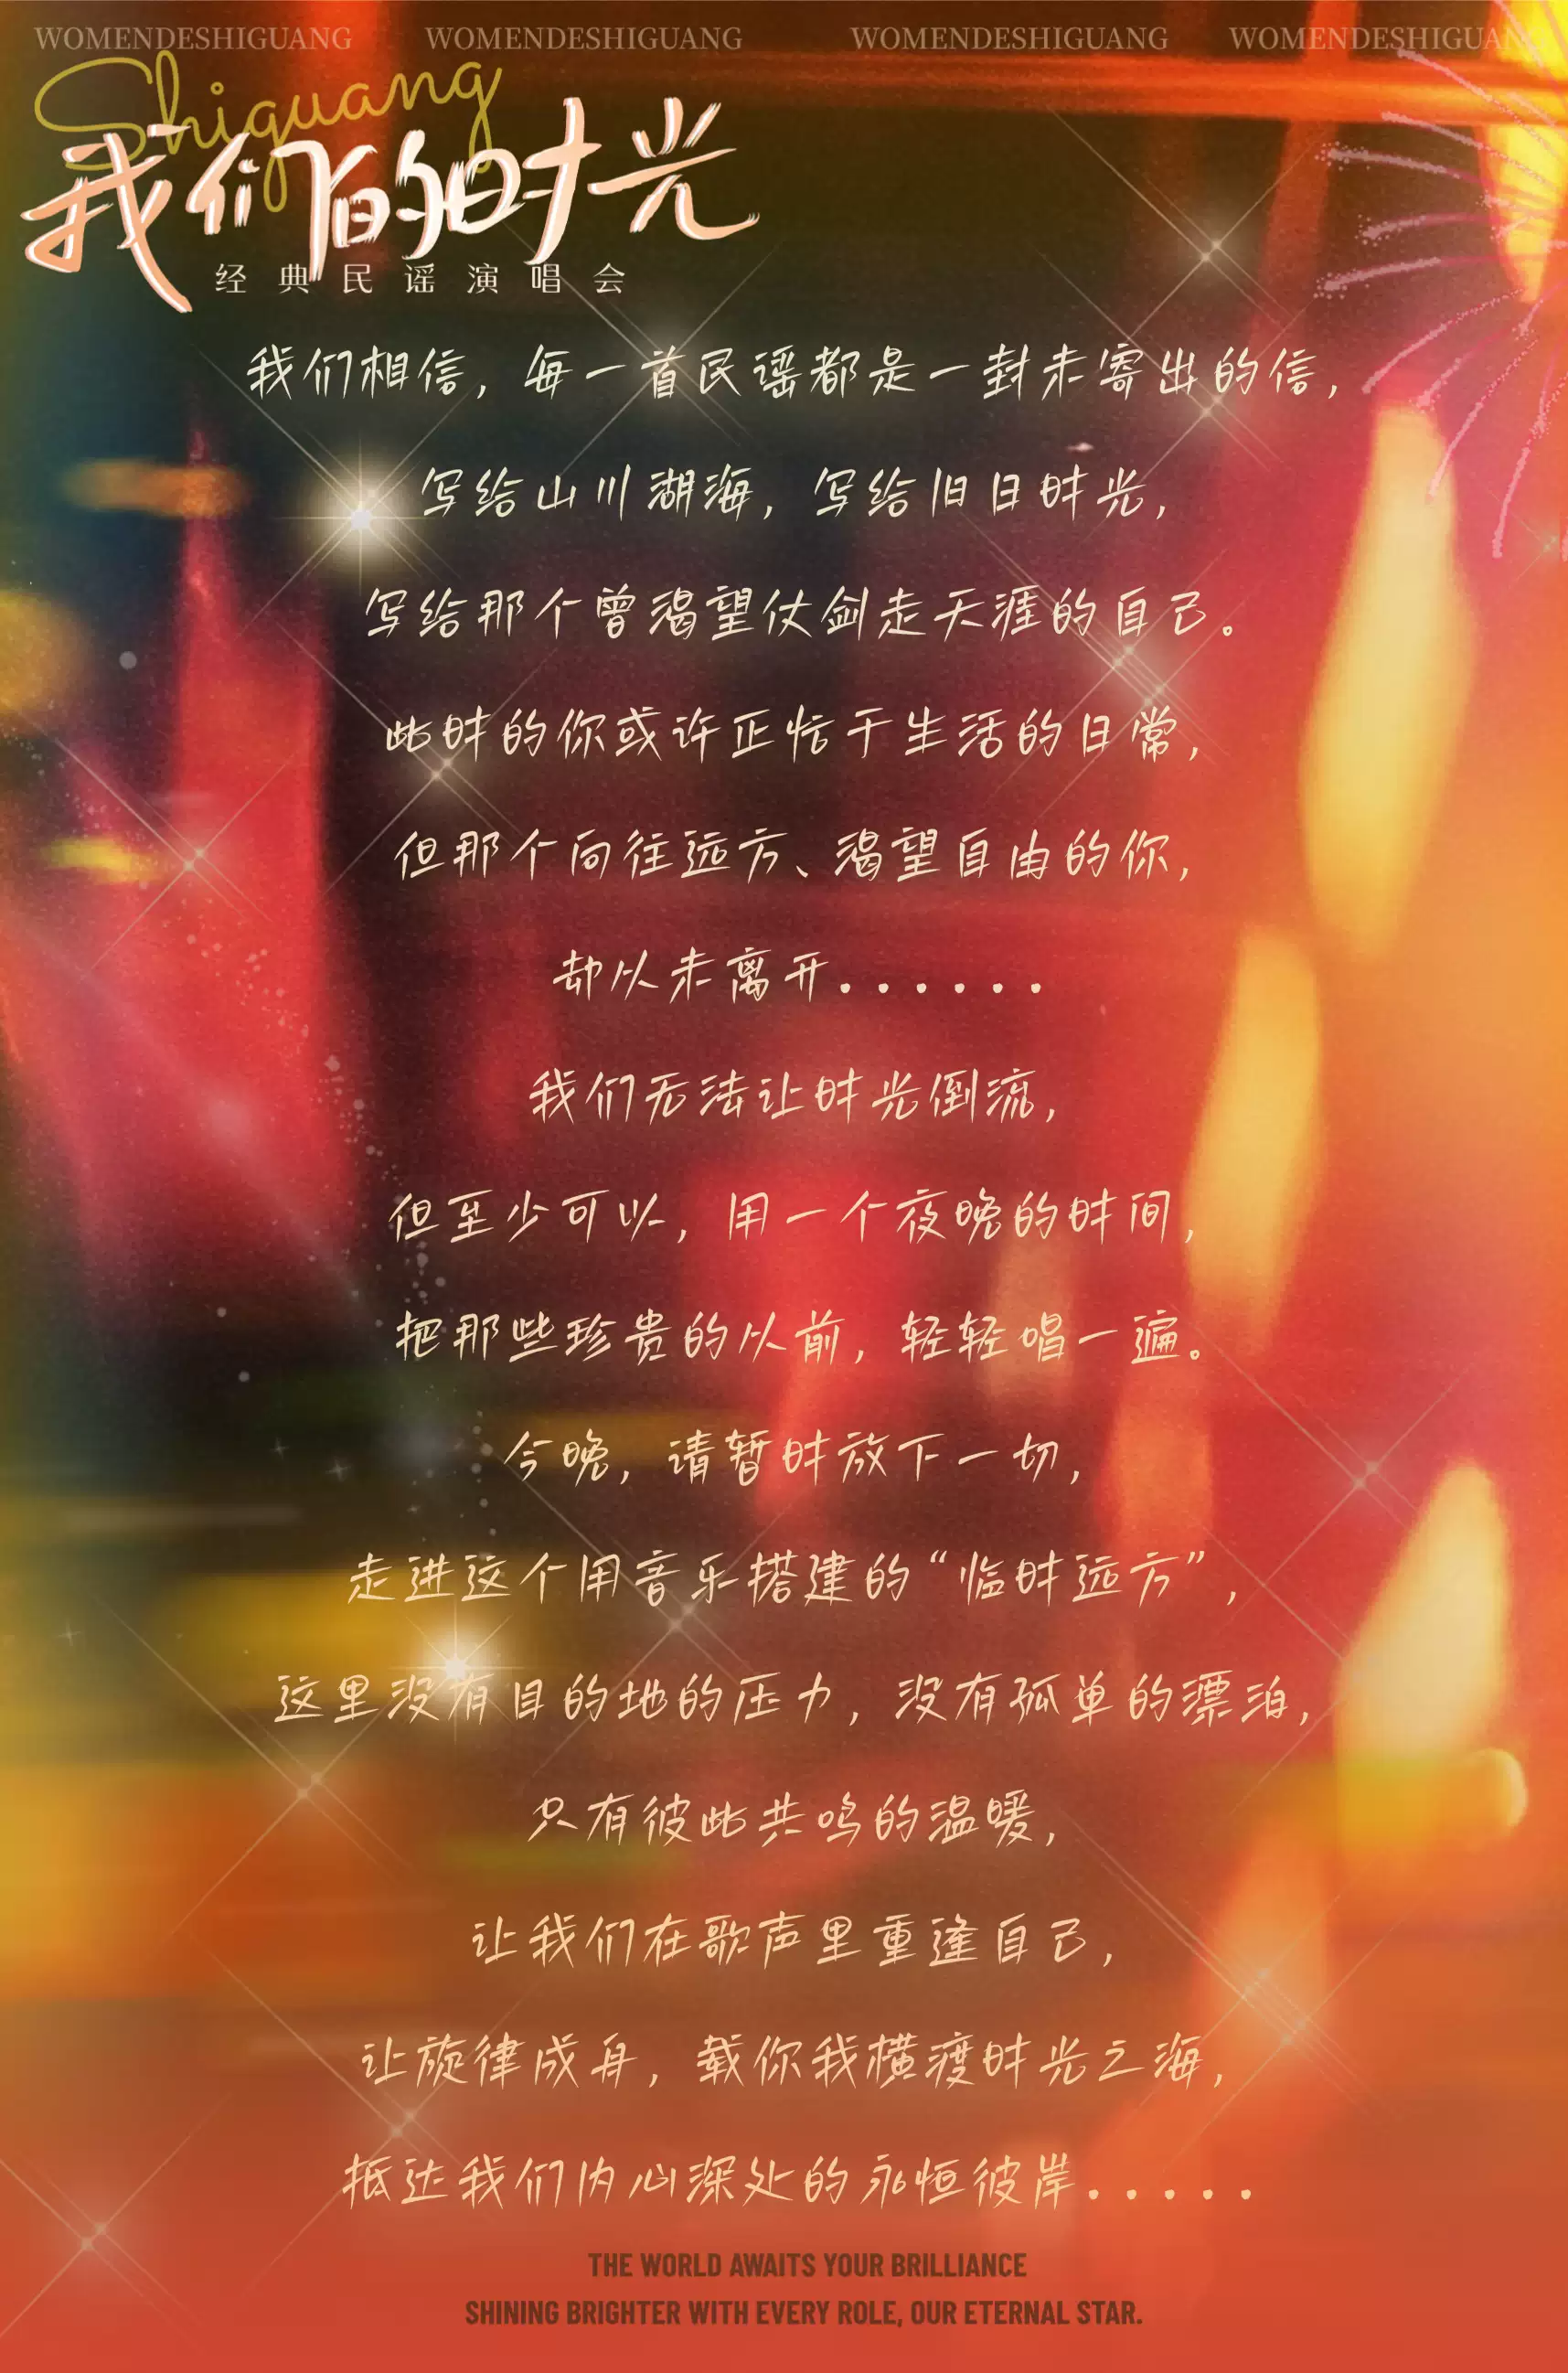 WOMENDESHIGUANG WOMENDESHIGUANG WOMENDESHIGUANG WOMENDESHIGUANG
Shiguang
我们的时光
经典民谣演唱会
我们相信，每一首民谣都是一封未寄出的信，
写给山川湖海，写给旧日时光，
写给那个曾渴望仗剑走天涯的自己。
此时的你或许正忙于生活的日常，
但那个向往远方、渴望自由的你，
却从未离开......
我们无法让时光倒流，
但至少可以，用一个夜晚的时间，
把那些珍贵的从前，轻轻唱一遍。
今晚，请暂时放下一切，
走进这个用音乐搭建的“临时远方”，
这里没有目的地的压力，没有孤单的漂泊，
只有彼此共鸣的温暖，
让我们在歌声里重逢自己，
让旋律成舟，载你我横渡时光之海，
抵达我们内心深处的永恒彼岸.....
THE WORLD AWAITS YOUR BRILLIANCE
SHINING BRIGHTER WITH EVERY ROLE, OUR ETERNAL STAR.